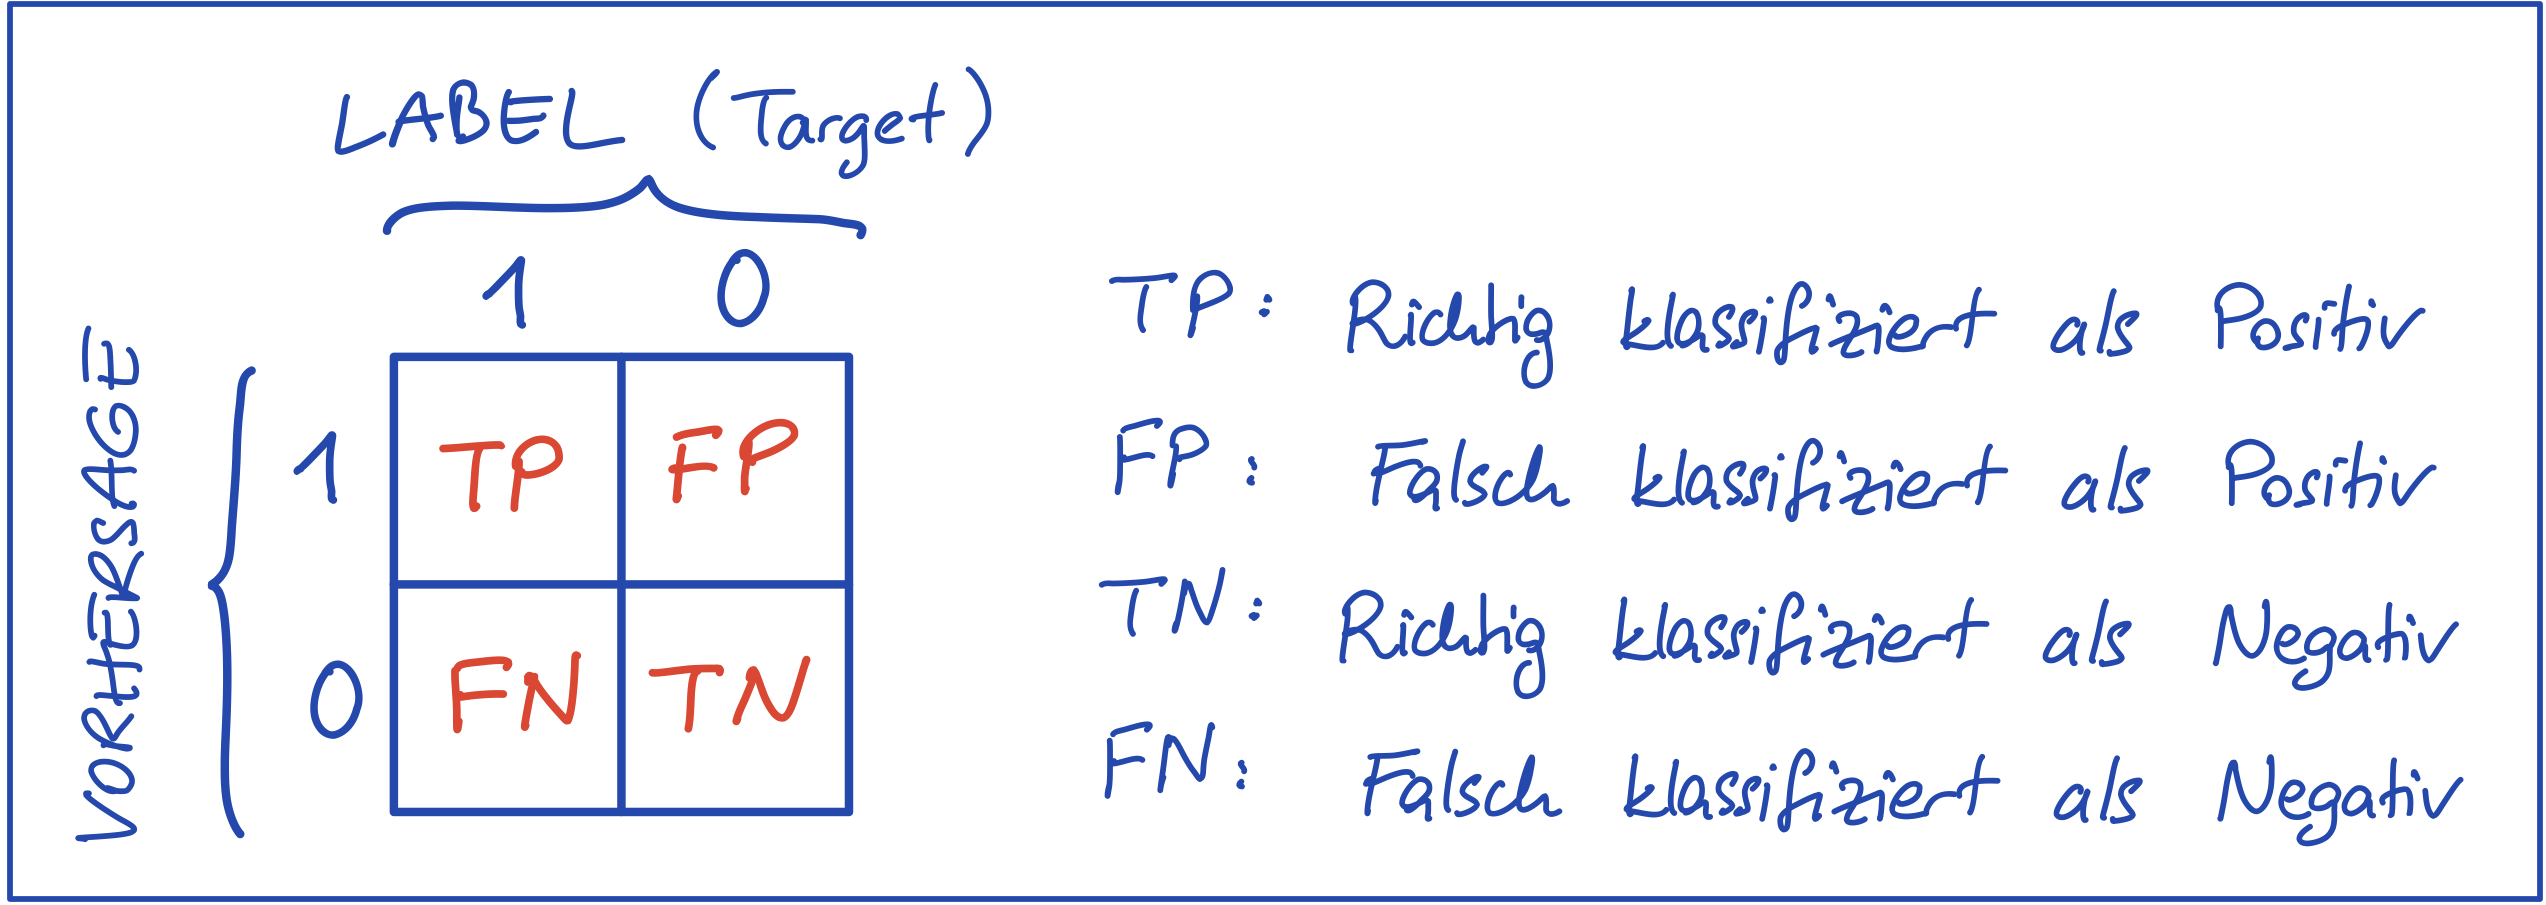 LABEL (Target)
1 0
VORHERSAGE
1 TP FP
0 FN TN
TP: Richtig klassifiziert als Positiv
FP: Falsch klassifiziert als Positiv
TN: Richtig klassifiziert als Negativ
FN: Falsch klassifiziert als Negativ